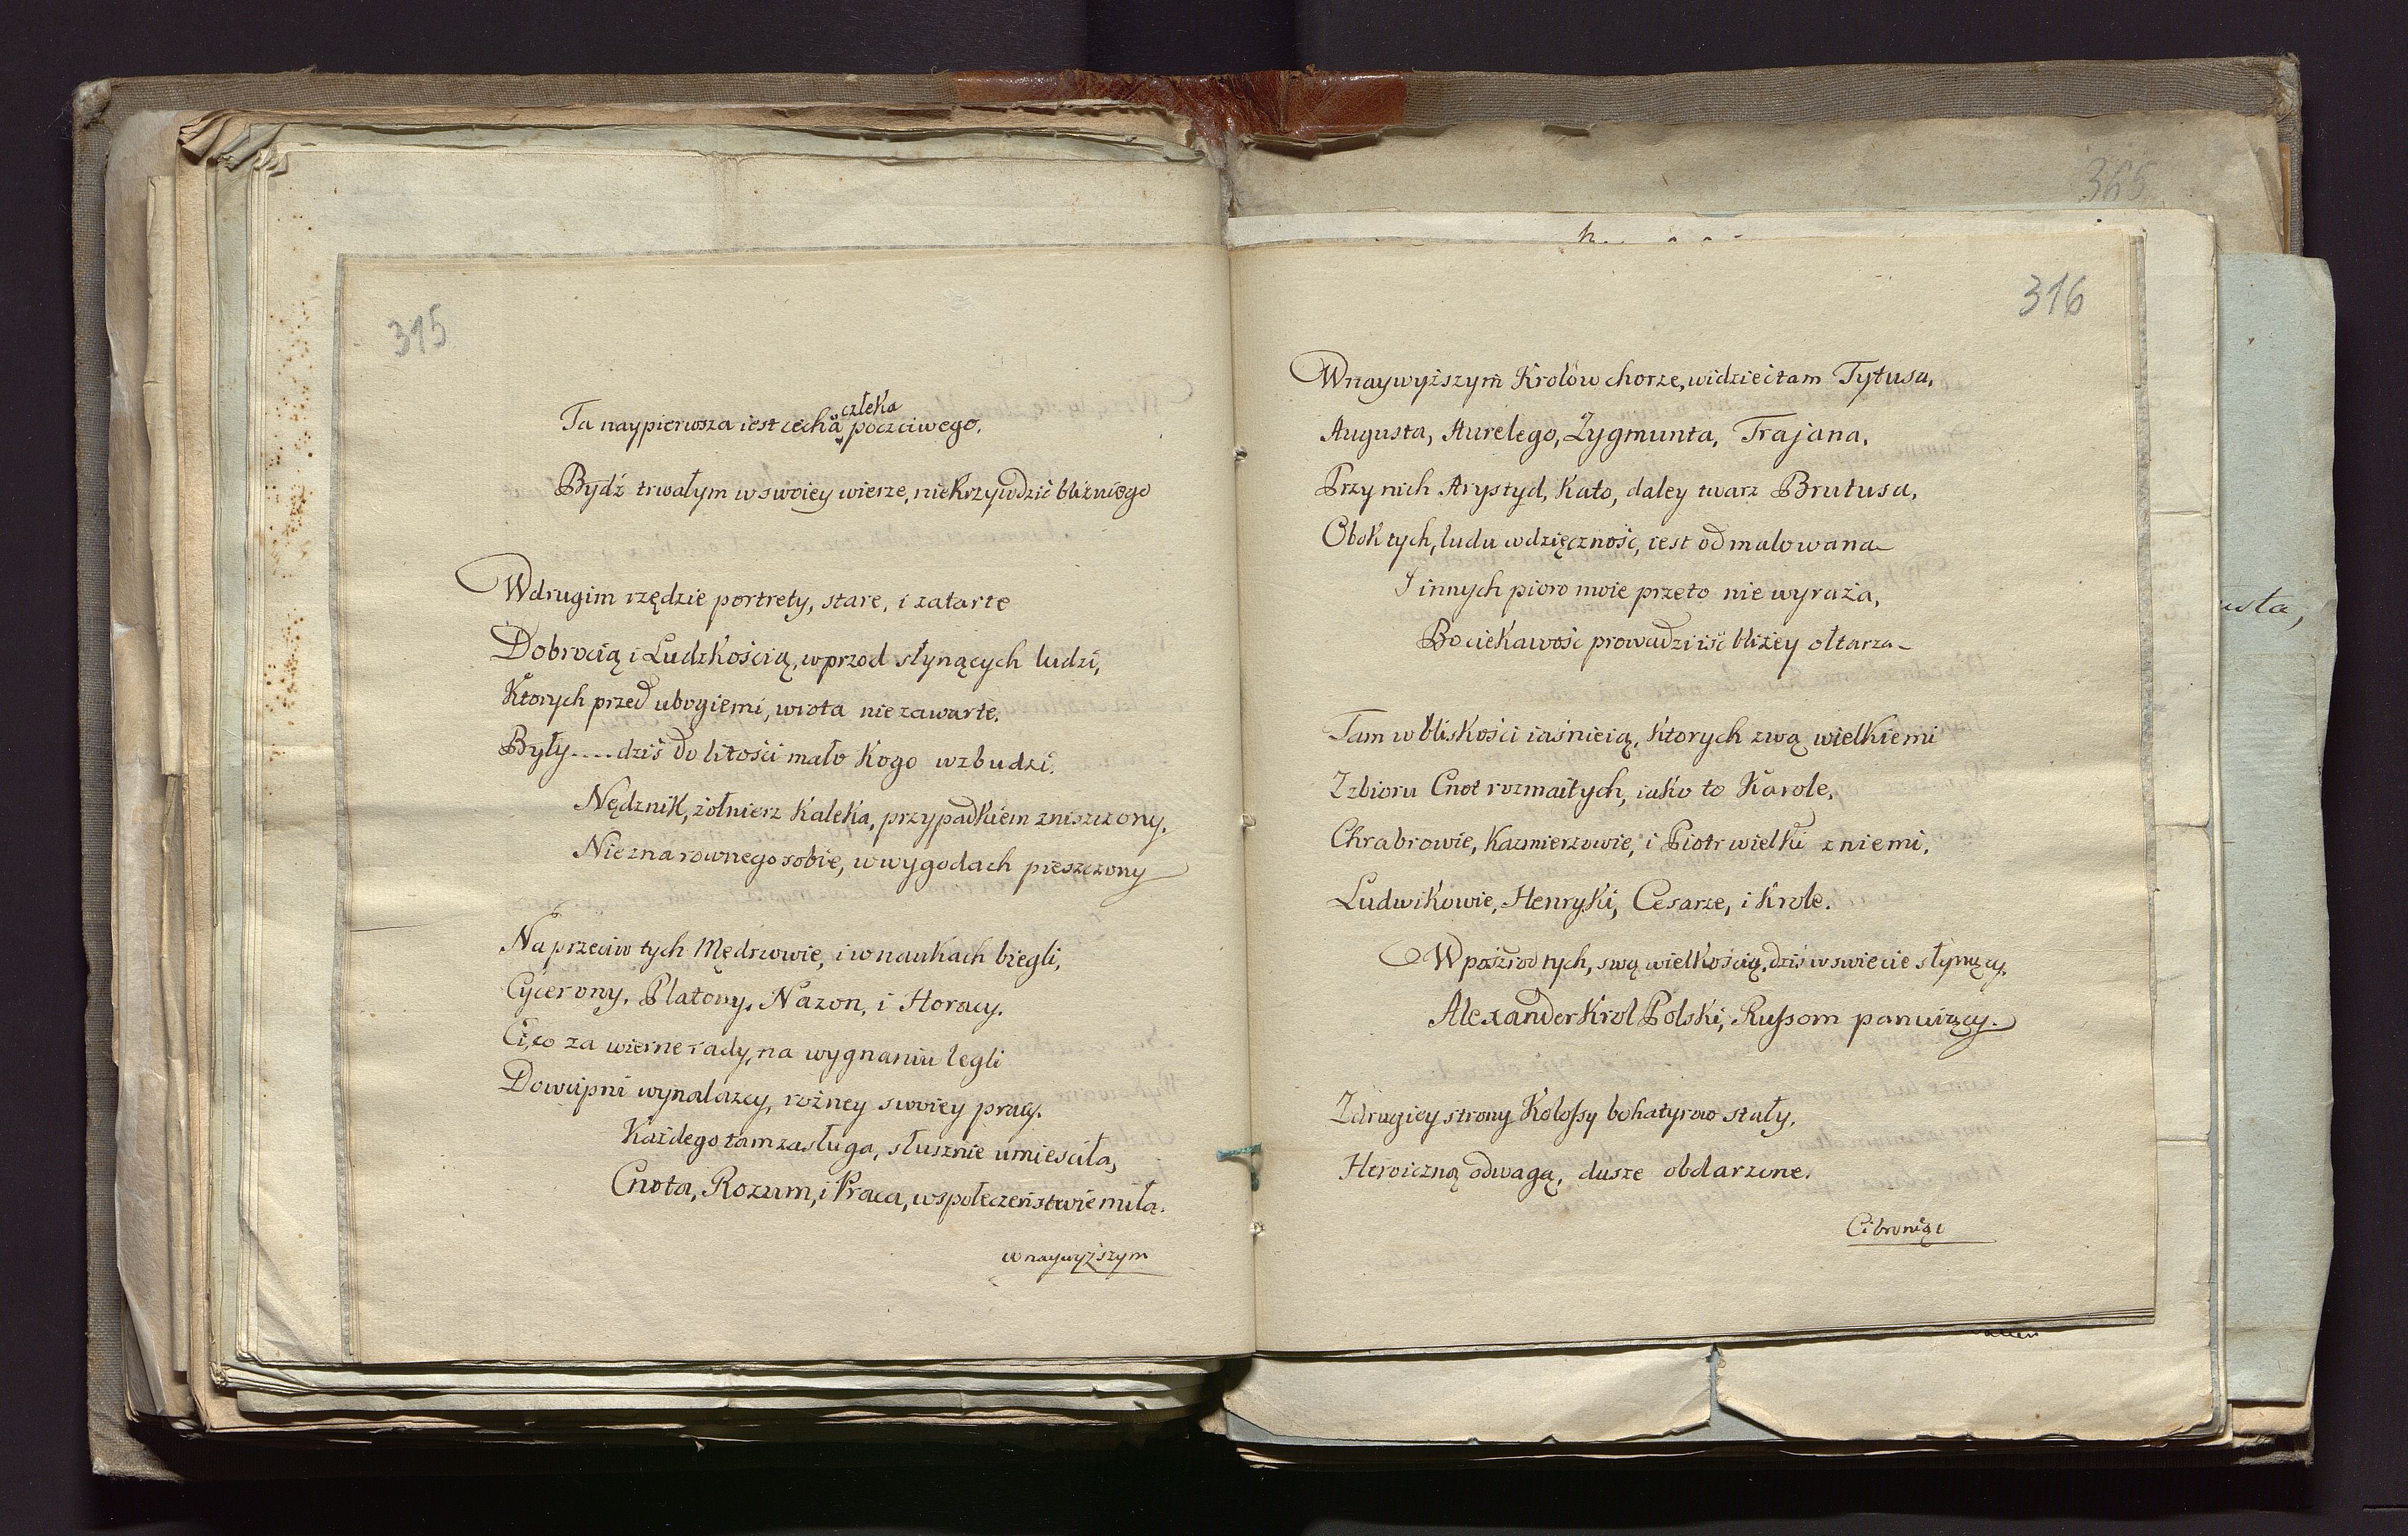 315
Ta naypierwsza iest cecha człeka poczciwego.
Bydź trwałym w swoiey wierze, niekrzywdzić bliźniego
W drugim rzędzie portrety, stare, i zatarte
Dobrocią i Ludzkością, wprzod słynących ludzi,
Ktorych przed ubogiemi, wrota nie zawarte.
Były.... dziś do litości mało kogo wzbudzi.
Nędznik, żołnierz kaleka, przypadkiem zniszczony.
Niezna rownego sobie, w wygodach pieszczony
Na przeciw tych Mędrcowie, i w naukach biegli,
Cycerony, Platony, Nazon, i Horacy.
Ci, co za wierne rady, na wygnaniu legli
Dowcipni wynalazcy, rożney swoiey pracy.
Każdego tam zasługa, słusznie umieściła,
Cnota, Rozum, i Praca, w społeczeństwie miła.
w naywyższym
365
316
W naywyższym Krolów chorze, widzieć tam Tytusa,
Augusta, Aurelego, Zygmunta, Trajana,
Przy nich Arystyd, Kato, daley twarz Brutusa,
Obok tych, ludu wdzięczność, iest odmalowana
I innych pioro moie przeto nie wyraża,
Bo ciekawość prowadzi iść bliżey ołtarza
Tam w bliskości iaśnieią, ktorych zwą wielkiemi
Z zbioru Cnot rozmaitych, iako to Karole,
Chrabrowie, Kazmierzowie, i Piotr wielki z niemi,
Ludwikowie, Henryki, Cesarze, i Krole.
W pośrzod tych, swą wielkością, dziś w swiecie słynący,
Alexander Krol Polski, Russom panuiący.
Z drugiey strony Kolossy bohatyrow stały,
Heroiczną odwagą, dusze obdarzone.
Ci broniąc
usta,